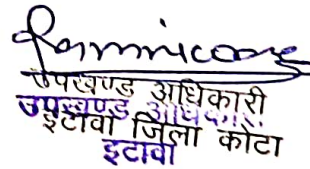 उपखण्ड अधिकारी
उपखण्ड अधिकारी
इटावा जिला कोटा
इटावा